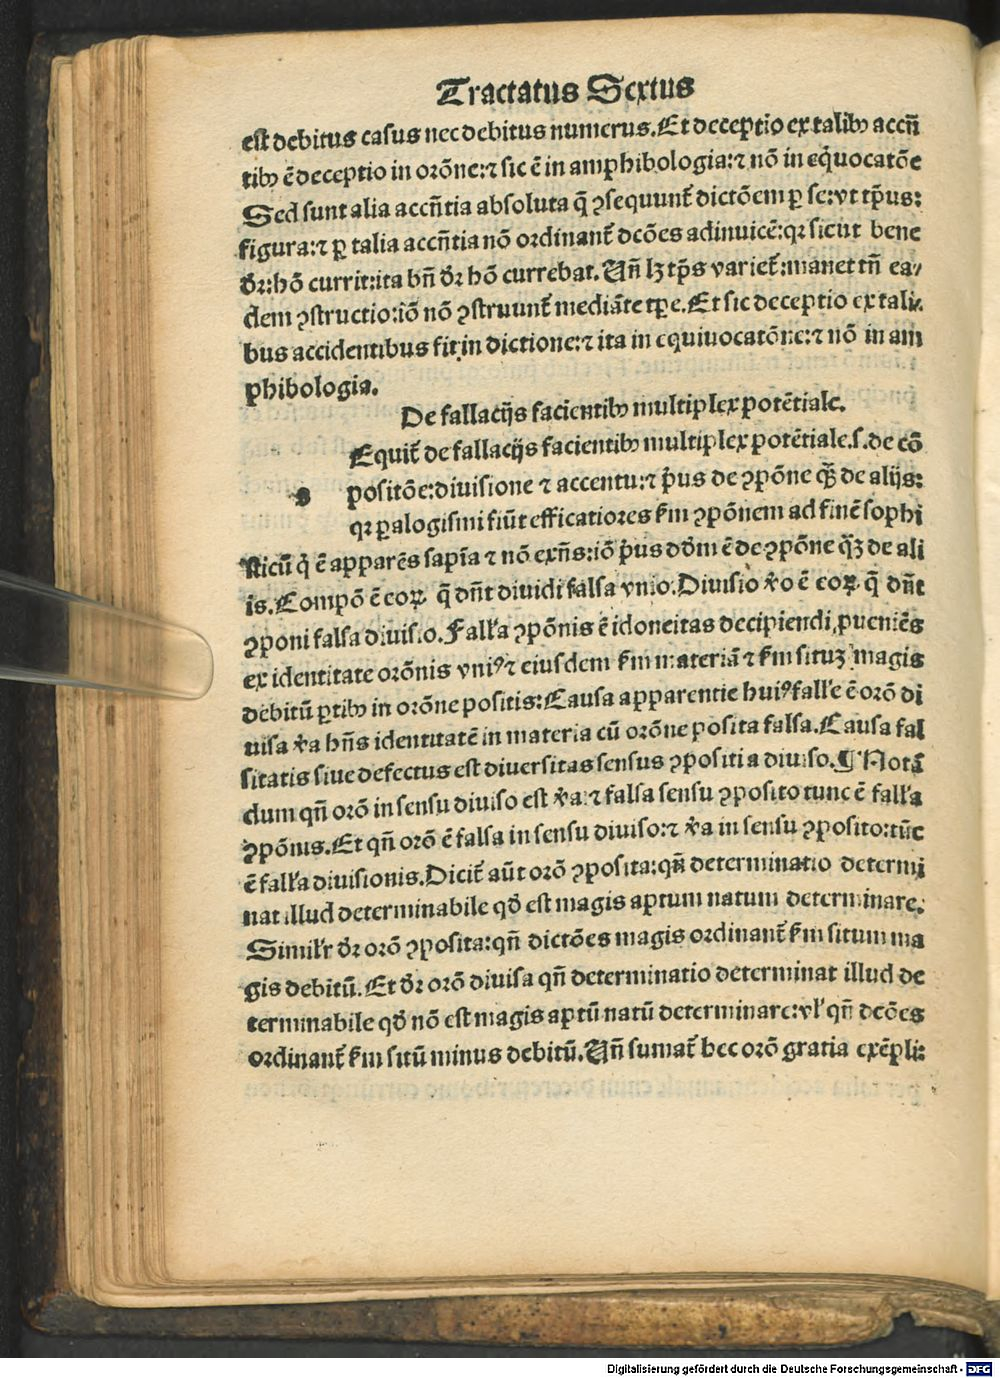 Tractatus Sextus
est debitus casus nec debitus numerus. Et deceptio ex talibꝰ accñ
tibꝰ ē deceptio in orōne: ⁊ sic ē in amphibologia: ⁊ nō in equocatōe
Sed sunt alia accñtia absoluta q̄ ꝯsequunt̄ dictōem ꝑ se: vt tp̄us:
figura: ⁊ ꝑ talia accñtia nō ordinant̄ dcōes adinuicē: qꝛ sicut bene
dr̄: hō currit: ita bñ dr̄ hō currebat. Uñ lꝫ tp̄s variet̄: manet tñ ea/
dem ꝯstructio: iō nō ꝯstruunt̄ mediāte tꝑe. Et sic deceptio ex tali/
bus accidentibus fit in dictione: ⁊ ita in equiuocatōne: ⁊ nō in am
phibologia.
De fallacijs facientibꝰ multiplex potētiale.
Equit̄ de fallacijs facientibꝰ multiplex potētiale .s. de cō
s positōe: diuisione ⁊ accentu: ⁊ p̄us de ꝯpōne qꝫ̄ de alijs:
qꝛ ꝑalogismi fiūt efficatiores ẜm ꝯpōnem ad finē sophi
sticū q̇ ē apparēs sapīa ⁊ nō exñs: iō p̄us dōm ē de ꝯpōne qꝫ̄ de ali
is. Compō ē eoꝝ q̄ dñt diuidi falsa vnio. Diuisio v̊o ē eoꝝ q̄ dñt
ꝯponi falsa diuisio. Fall'a ꝯpōnis ē idoneitas decipiendi ꝓueniēs
ex identitate orōnis vniꝰ ⁊ eiusdem ẜm materiā ⁊ ẜm situꝫ magis
debitū ꝑtibꝰ in orōne positis: Causa apparentie huiꝰ fall'e ē orō di
uisa v̊a hñs identitatē in materia cū orōne posita falsa. Causa fal
sitatis siue defectus est diuersitas sensus ꝯpositi a diuiso. ¶ Notā
dum qñ orō in sensu diuiso est v̊a: ⁊ falsa sensu ꝯposito tunc ē fall'a
ꝯpōnis. Et qñ orō ē falsa in sensu diuiso: ⁊ v̊a in sensu ꝯposito: tūc
ē fall'a diuisionis. Dicit̄ aūt orō ꝯposita: qñ determinatio determi
nat illud determinabile qd̄ est magis aptum natum determinare.
Simil'r dr̄ orō ꝯposita: qñ dictōes magis ordinant̄ ẜm situm ma
gis debitū. Et dr̄ orō diuisa qñ determinatio determinat illud de
terminabile qd̄ nō est magis aptū natū determinare: vl' qñ dcōes
ordinant̄ ẜm sitū minus debitū. Uñ sumat̄ hec orō gratia exēpli:
Digitalisierung gefördert durch die Deutsche Forschungsgemeinschaft - DFG